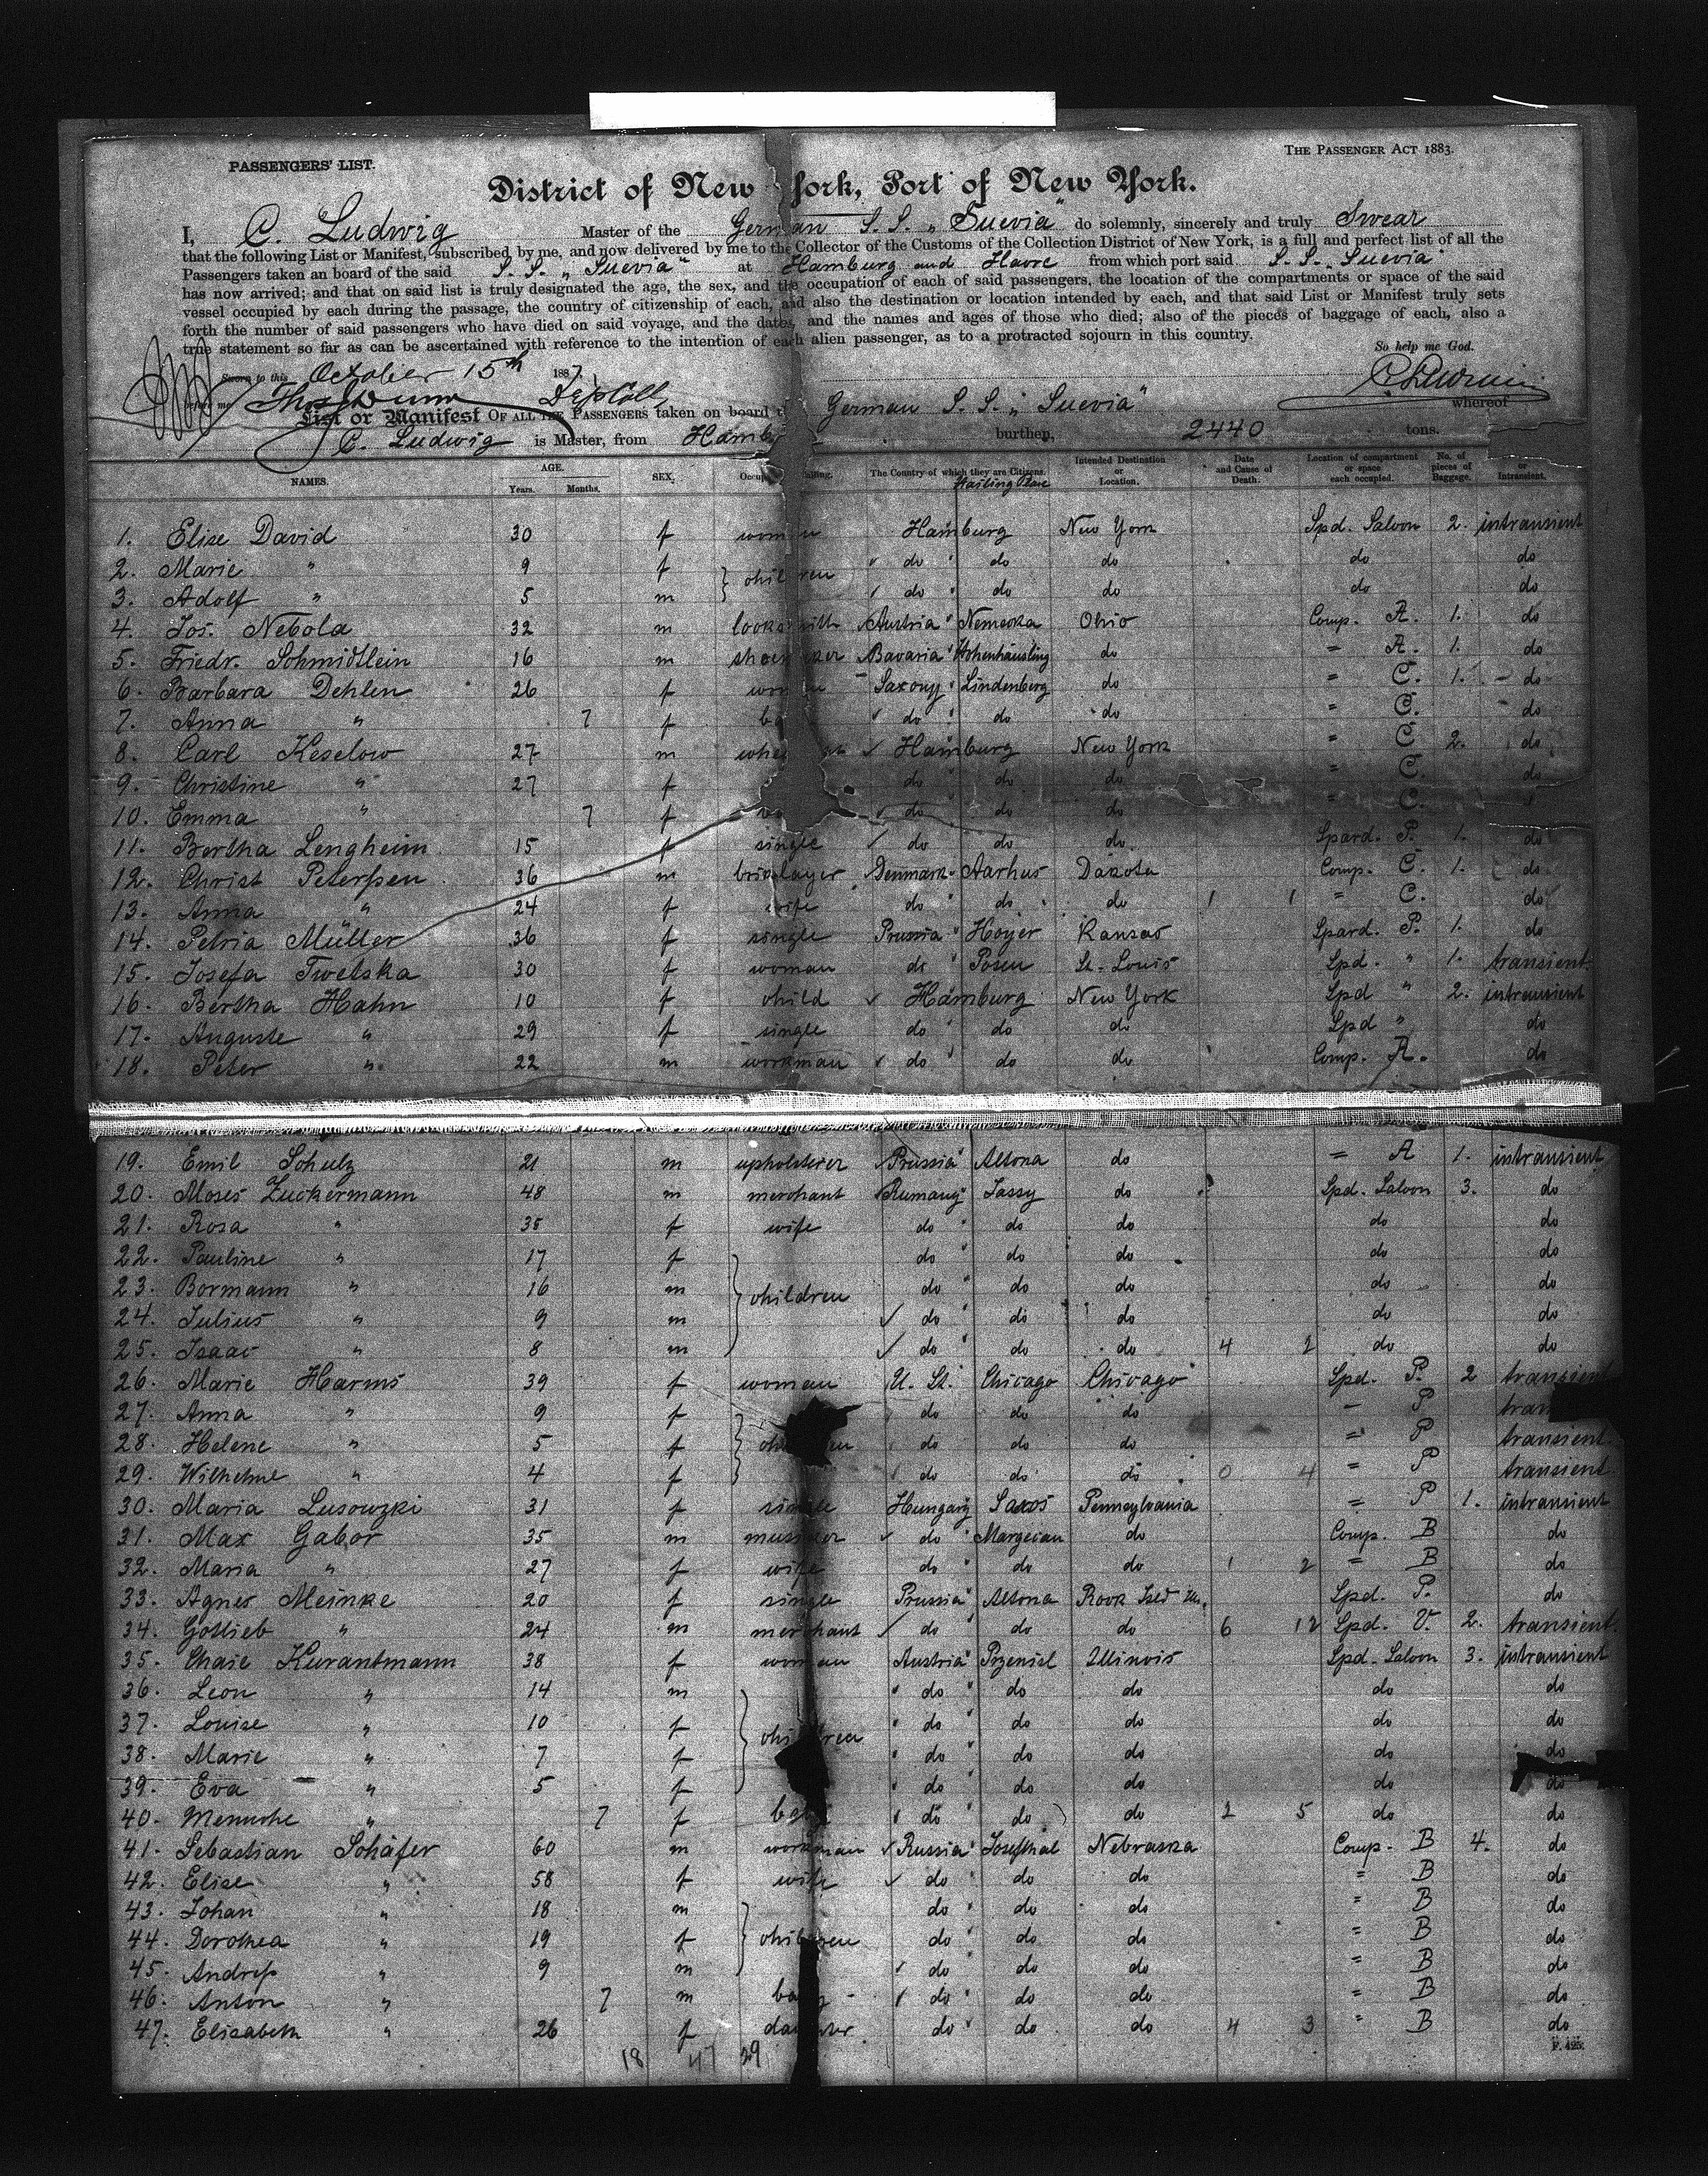 PASSENGERS' LIST.
THE PASSENGER ACT 1883.
District of New York, Port of New York.
I, C. Ludwig Master of the German S.S. „Suevia" do solemnly, sincerely and truly Swear
that the following List or Manifest, subscribed by me, and now delivered by me to the Collector of the Customs of the Collection District of New York, is a full and perfect list of all the
Passengers taken an board of the said S.S. „Suevia" at Hamburg and Havre from which port said S.S. „Suevia"
has now arrived; and that on said list is truly designated the age, the sex, and the occupation of each of said passengers, the location of the compartments or space of the said
vessel occupied by each during the passage, the country of citizenship of each, and also the destination or location intended by each, and that said List or Manifest truly sets
forth the number of said passengers who have died on said voyage, and the dates, and the names and ages of those who died; also of the pieces of baggage of each, also a
true statement so far as can be ascertained with reference to the intention of each alien passenger, as to a protracted sojourn in this country.
So help me God.
Sworn to this October 15th 1887
before me Thos Dunn Dep Coll C. Ludwig
List or Manifest OF ALL THE PASSENGERS taken on board German S.S. „Suevia" whereof
C. Ludwig is Master, from Hamb burthen, 2440 tons.
NAMES. AGE. Years. Months. SEX. The Country of which they are Citizens. Hailing Place Intended Destination or Location. Date and Cause of Death. Location of compartment or space each occupied. No. of pieces of Baggage. or Intransient.
1. Elise David 30 f woman Hamburg New York Spd. Saloon 2. intransient
2. Marie " 9 f children do do do do do
3. Adolf " 5 m do do do do do
4. Jos. Nebola 32 m locksmith Austria Nemecka Ohio Comp. A. 1. do
5. Friedr. Schmidtlein 16 m shoemaker Bavaria Hohenhäusling do " A. 1. do
6. Barbara Dehlen 26 f woman Saxony Lindenberg do " C. 1. do
7. Anna " 7 f ba do do do " C. do
8. Carl Keselow 27 m Hamburg New York " C 2. do
9. Christine " 27 f do do do " C. do
10. Emma " 7 f do do do " C.
11. Bertha Lengheim 15 f single do do do. Spard. P. 1. do
12. Christ Peterssen 36 m bricklayer Denmark Aarhus Dakota Comp. C. 1. do
13. Anna " 24 f wife do do do " C. do
14. Petria Müller 36 f single Prussia Hoyer Kansas Spard. P. 1. do
15. Josefa Twetska 30 f woman do Posen St. Louis Spd. " 1. transient
16. Bertha Hahn 10 f child Hamburg New York Spd " 2. intransient
17. Auguste " 29 f single do do do Spd " do
18. Peter " 22 m workman do do do Comp. A. do
19. Emil Schulz 21 m upholsterer Prussia Altona do = A 1. intransient
20. Moses Zuckermann 48 m merchant Rumany Jassy do Spd. Saloon 3. do
21. Rosa " 35 f wife do do do do do
22. Pauline " 17 f do do do do do
23. Bormann " 16 m children do do do do do
24. Julius " 9 m do do do do do
25. Isaac " 8 m do do do 4 2 do do
26. Marie Harms 39 f woman U. St. Chicago Chicago Spd. P. 2 transient
27. Anna " 9 f do do do = P tran
28. Helene " 5 f children do do do = P transient
29. Wilhelme " 4 f do do do 0 4 = P transient
30. Maria Lusowzki 31 f single Hungary Saros Pennsylvania = P 1. intransient
31. Max Gabor 35 m do Margecan do Comp. B do
32. Maria " 27 f wife do do do 1 2 = B do
33. Agnes Meinke 20 f single Prussia Altona Rock Isld Ill. Spd. P. do
34. Gottlieb " 24 m merchant do do do 6 12 Spd. V. 2. transient
35. Chaie Kurantmann 38 f woman Austria Przenisl Illinois Spd. Saloon 3. intransient
36. Leon " 14 m do do do do do
37. Louise " 10 f children do do do do do
38. Marie " 7 f do do do do do
39. Eva " 5 f do do do do do
40. Menuche " 7 f baby do do do 2 5 do do
41. Sebastian Schäfer 60 m workman Russia Josefthal Nebraska Comp. B 4. do
42. Elise " 58 f wife do do do = B do
43. Johan " 18 m do do do = B do
44. Dorothea " 19 f children do do do = B do
45. Andress " 9 m do do do = B do
46. Anton " 7 m baby do do do = B do
47. Elisabeth " 26 f daughter do do do 4 3 " B do
18 47 29